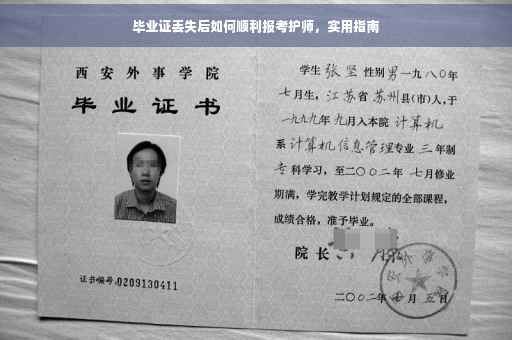 毕业证丢失后如何顺利报考护师，实用指南
西安外事学院
毕业证书
证书编号:0209130411
学生 张坚 性别男 一九八〇年
七月生，江苏省苏州县(市)人,于
一九九九年九月入本院 计算机
系计算机信息管理专业 三 年制
专科学习，至二〇〇二年 七月修业
期满，学完教学计划规定的全部课程，
成绩合格，准予毕业。
院长
二〇〇二年 月五日